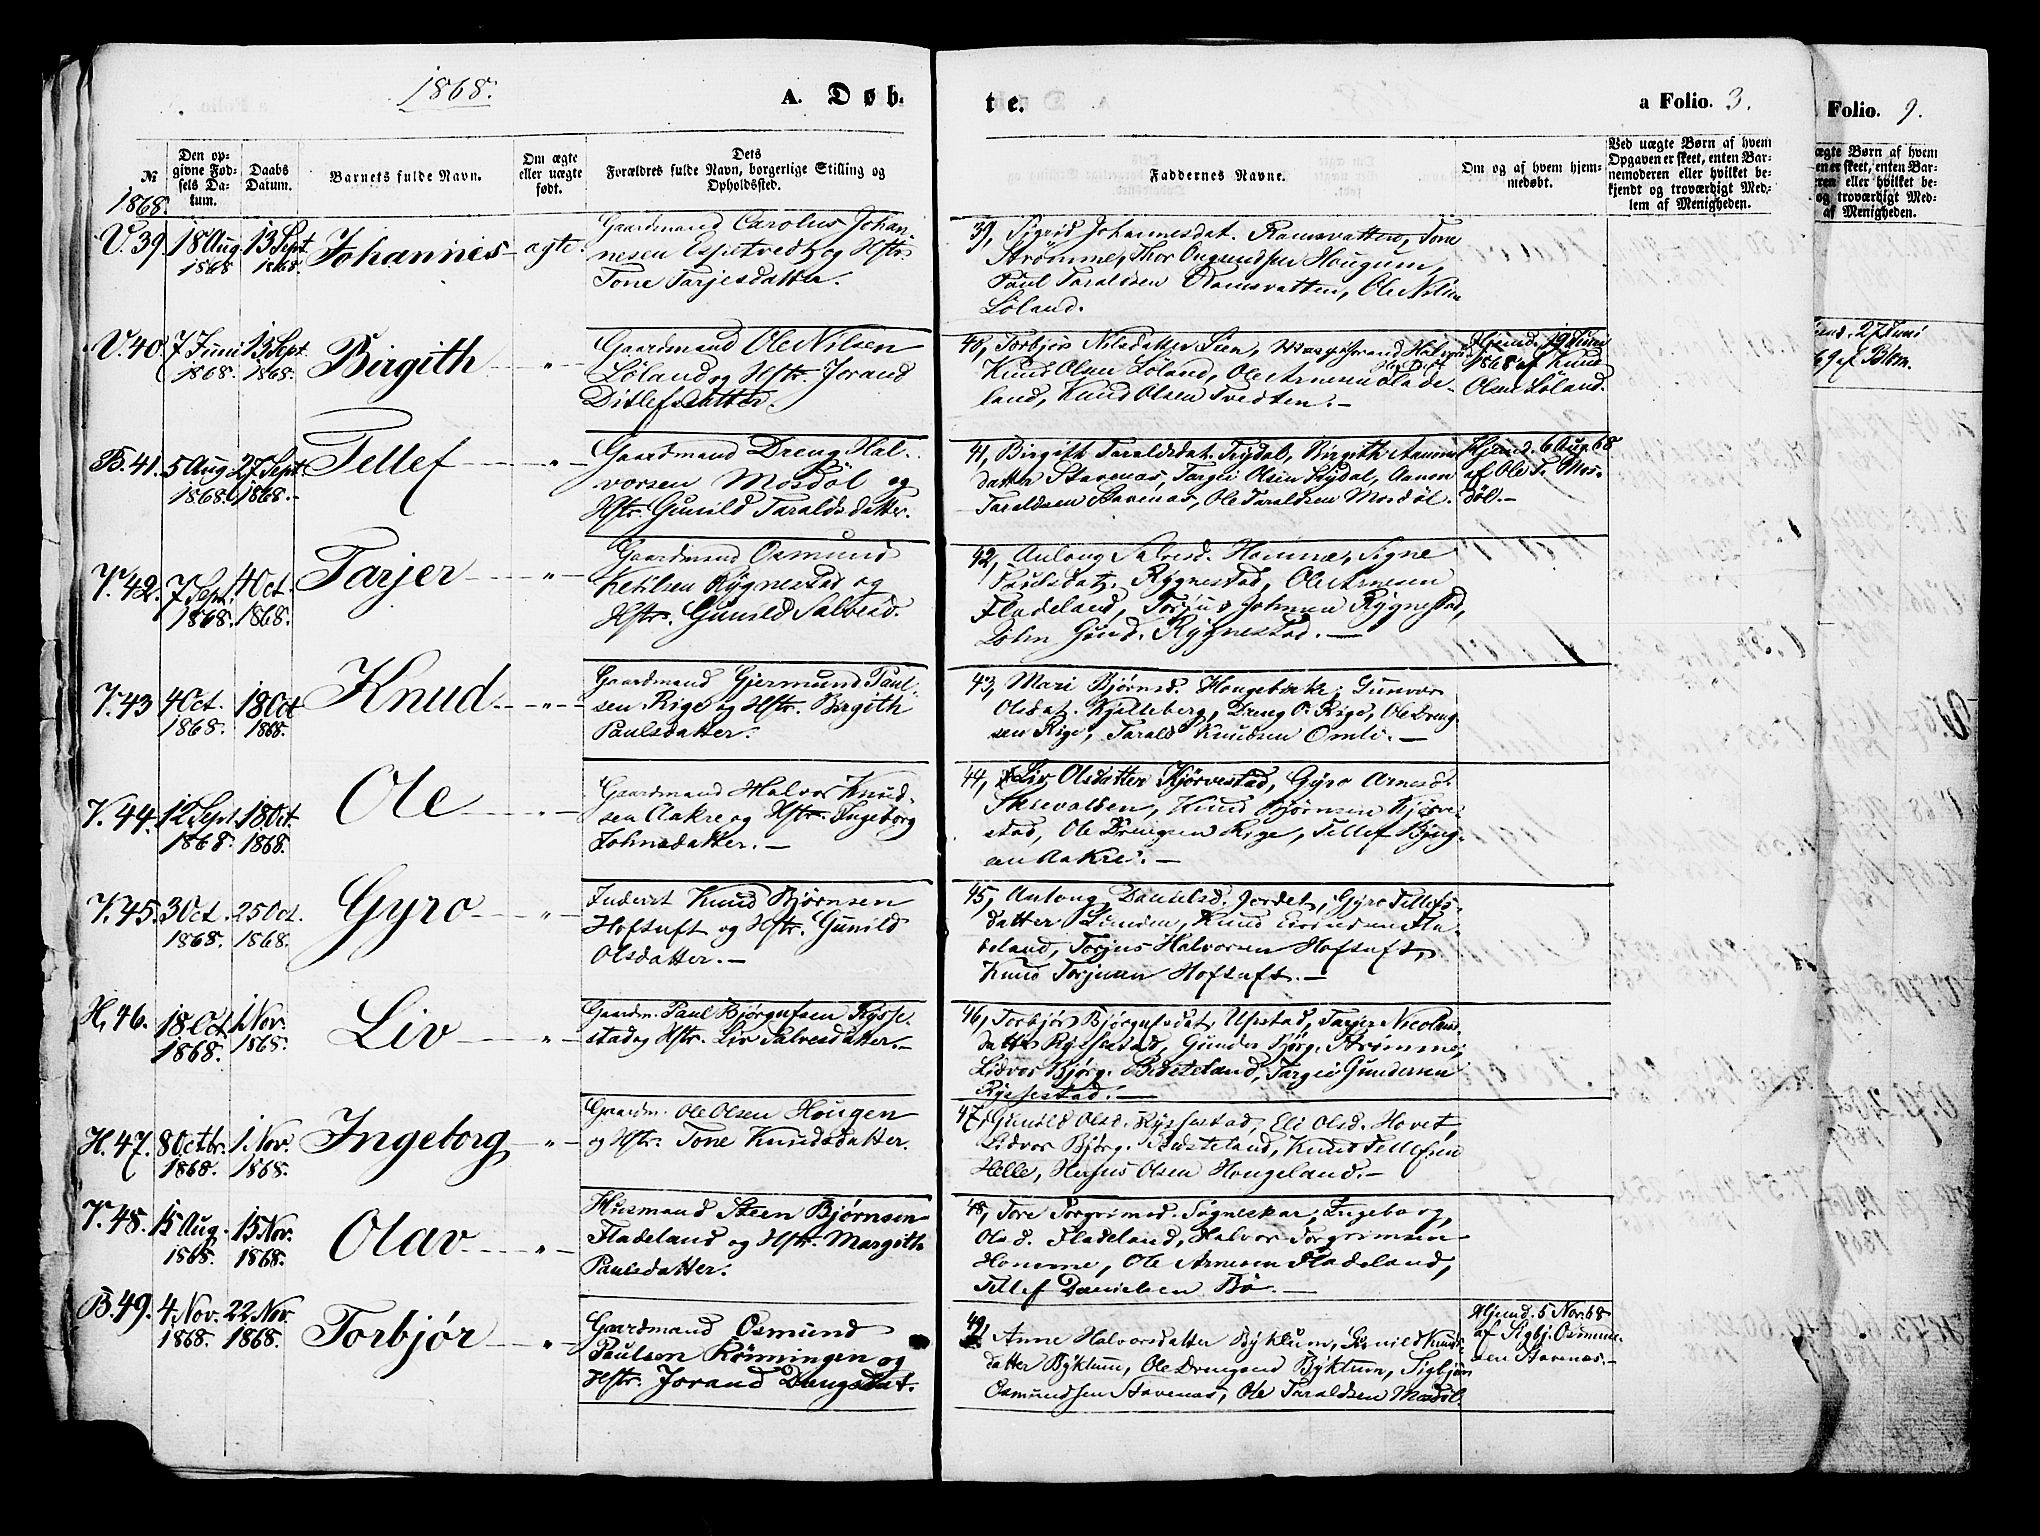 1868.
A. Døb.
te.
a Folio. 3.
Folio. 9.
№
Den op-
givne Fød-
sels Da-
tum.
Daabs
Datum.
Barnets fulde Navn.
Om ægte
eller uægte
født.
Dets
Forældres fulde Navn, borgerlige Stilling og
Opholdssted.
Faddernes Navne.
Om og af hvem hjem-
medøbt.
Ved uægte Børn af hvem
Opgaven er skeet, enten Bar-
nemoderen eller hvilket be-
kjendt og troværdigt Med-
lem af Menigheden.
1868.
V. 39 18 Aug 1868 13 Sept. 1868. Johannes ægte.
Gaardmand Carolus Johan-
nesen Espetvedt og Hstr.
Tone Tarjesdatter.
39, Sigrid Johannesdat. Ramsvatten, Tone
Strømme, Thor Ongundsen Hougum,
Paul Taraldsen Ramsvatten, Ole Nilsen
Løland.
V. 40 7 Juni 1868. 13 Sept. 1868. Birgith — " —
Gaardmand Ole Nilsen
Løland og Hstr. Jorand
Ditlefsdatter.
40, Torbjør Nilsdatter Lien,
Knud Olsen Løland, Ole Arnesen Flade-
land, Knud Olsen Tvedten. —
Hjemd. 19 Juni
1868 af Knud
Olsen Løland.
B. 41. 5 Aug 1868. 27 Sept. 1868. Tellef — " —
Gaardmand Dreng Hal-
vorsen Mosdøl og
Hstr. Gunild Taraldsdatter.
41, Birgith Taraldsdat. Trydal, Birgith Aanun-
datter Stavenæs, Targei Olsen Trydal, Aanon
Taraldsen Stavenæs, Ole Taraldsen Mosdøl.
Hjemd. 6 Aug. 68
af Ole T. Mos-
døl. —
V. 42. 7 Sept. 1868. 4 Oct. 1868. Tarjer — " —
Gaardmand Osmund
Ketilsen Rygnestad og
Hstr. Gunild Salvesd.
42, Anlong Salvesd. Homme, Signe
Paulsdat. Rygnestad, Ole Arnesen
Fladeland, Torjus Johnsen Rygnestad,
John Gund. Rygnestad. —
V. 43 4 Oct. 1868. 18 Oct 1868. Knud — " —
Gaardmand Gjermund Paul-
sen Rige og Hstr. Birgith
Paulsdatter.
43, Mari Bjørnsd. Hougebirke, Gunvor
Olsdat. Kjelleberg, Dreng O. Rige, Ole Dreng-
sen Rige, Tarald Knudsen Omli. —
V. 44. 12 Sept. 1868. 18 Oct. 1868. Ole — " —
Gaardmand Halvor Knud-
sen Aakre og Hstr. Ingeborg
Johnsdatter. —
44, Liv Olsdatter Kjørvestad, Gyro Arnesd.
Skrevalden, Knud Bjørnsen Kjørve-
stad, Ole Drengsen Rige, Tellef Byng-
en Aakre. —
V. 45. 3 Oct. 1868. 25 Oct. 1868. Gyro — " —
Inderst Knud Bjørnsen
Hoftuft og Hstr. Gunild
Olsdatter. —
45, Anlong Danielsd. Jordet, Gyro Tellefs-
datter Lunden, Knud Eivindsen Fla-
deland, Torjus Halvorsen Hoftuft,
Knud Torjusen Hoftuft. —
H. 46. 18 Oct 1868. 1 Nov. 1868. Liv — " —
Gaardm. Paul Bjørgufsen Rysse-
stad og Hstr. Liv Salvesdatter. —
46, Torbjør Bjørgufsdat. Upstad, Tarjer Nicolaus-
datter Ryssestad, Gunder Bjørg. Strømme,
Lidvor Bjørg. Besteland, Targei Gundersen
Ryssestad. —
H. 47. 8 Octbr. 1868. 1. Nov. 1868. Ingeborg — " —
Gaardm. Ole Olsen Hougen
og Hstr. Tone Knudsdatter.
47, Gunild Olsd. Ryssestad, Eli Olsd. Hovet,
Lidvor Bjørg. Besteland, Knud Tellefsen
Helle, Herjus Olsen Hougeland. —
V. 48. 15 Aug. 1868. 15 Nov. 1868. Olav — " —
Husmand Steen Bjørnsen
Fladeland og Hstr. Margith
Paulsdatter.
48, Tore Torgrimsd. Sagneskar, Ingeborg
Olsd. Fladeland, Halvor Torgrimsen
Homme, Ole Arnesen Fladeland,
Tellef Danielsen Bø. —
B. 49. 4 Nov. 1868. 22 Nov. 1868. Torbjør — " —
Gaardmand Osmund
Paulsen Rønningen og
Hstr. Jorand Dengsdat.
49, Anne Halvorsdatter Byklum, Gunild Knuds-
datter Byklum, Ole Drengsen Byklum, Sigbjørn
Osmundsen Stavenæs, Ole Taraldsen Mosdøl.
Hjemd. 5 Nov. 68
af Sigbj. Osmund-
sen Stavenæs. —
ægte Børn af hvem
en er skeet, enten Bar-
ren eller hvilket be-
og troværdigt Med-
af Menigheden.
27 Juni
69 af Blom.